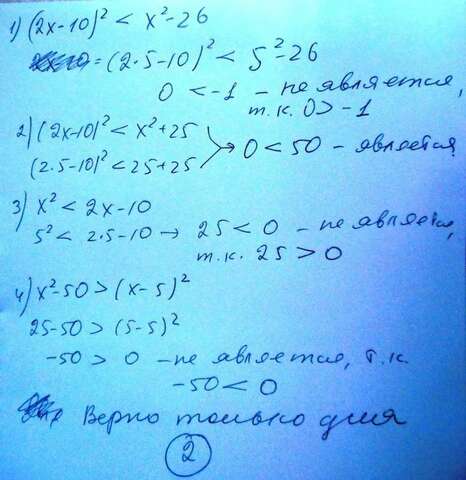 1) (2x-10)² < x²-26
= (2·5-10)² < 5²-26
0 < -1 - не является,
т.к. 0 > -1
2) (2x-10)² < x²+25
(2·5-10)² < 25+25 → 0 < 50 - является
3) x² < 2x-10
5² < 2·5-10 → 25 < 0 - не является,
т.к. 25 > 0
4) x²-50 > (x-5)²
25-50 > (5-5)²
-50 > 0 - не является, т.к.
-50 < 0
Верно только для
2